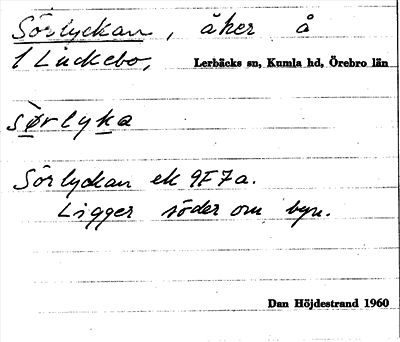 Sörlyckan, åker å
1 Luckebo, Lerbäcks sn, Kumla hd, Örebro län
sørlyka
Sörlyckan ek 9F7a.
Ligger söder om byn.
Dan Höjdestrand 1960